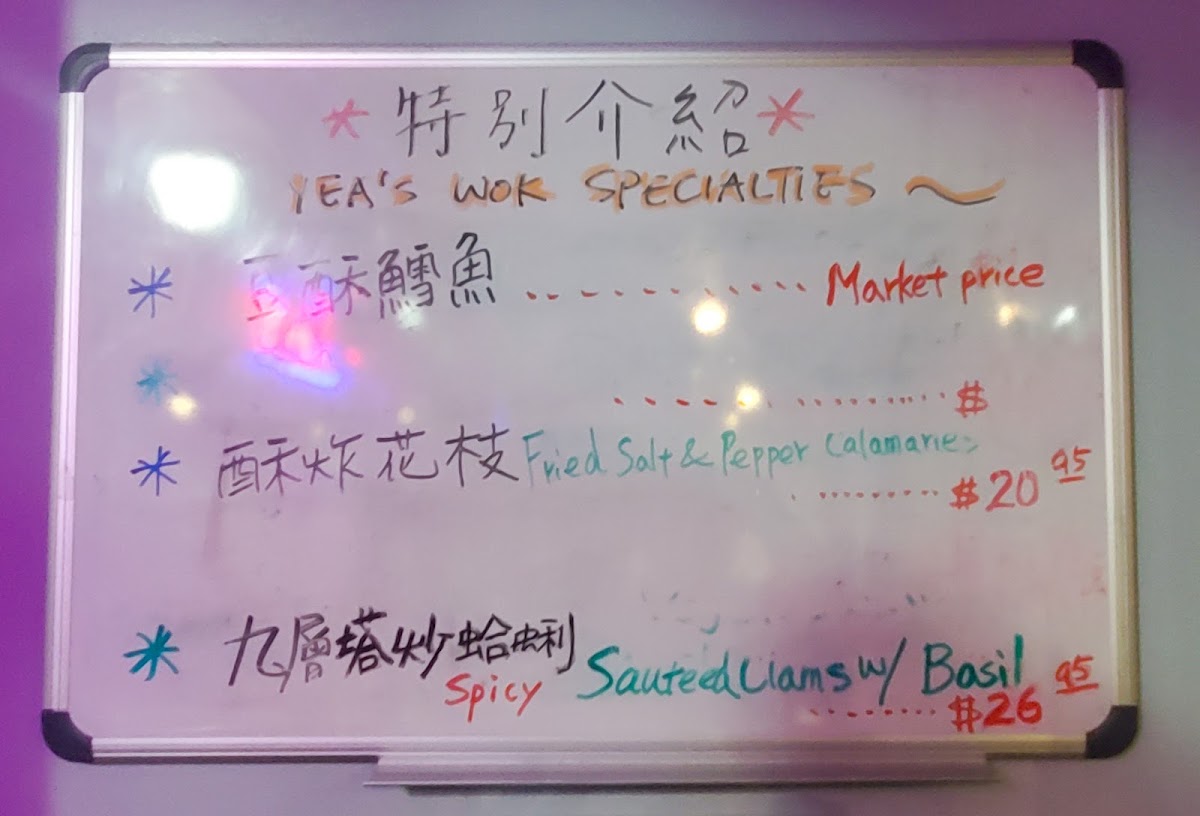 * 特別介紹 *
YEA'S WOK SPECIALTIES ~
* 豆酥鱈魚 ............ Market price
* ............ $
* 酥炸花枝 Fried Salt & Pepper Calamaries
......... $20 95
* 九層塔炒蛤蜊 Sauteed Clams w/ Basil
Spicy ........ $26 95